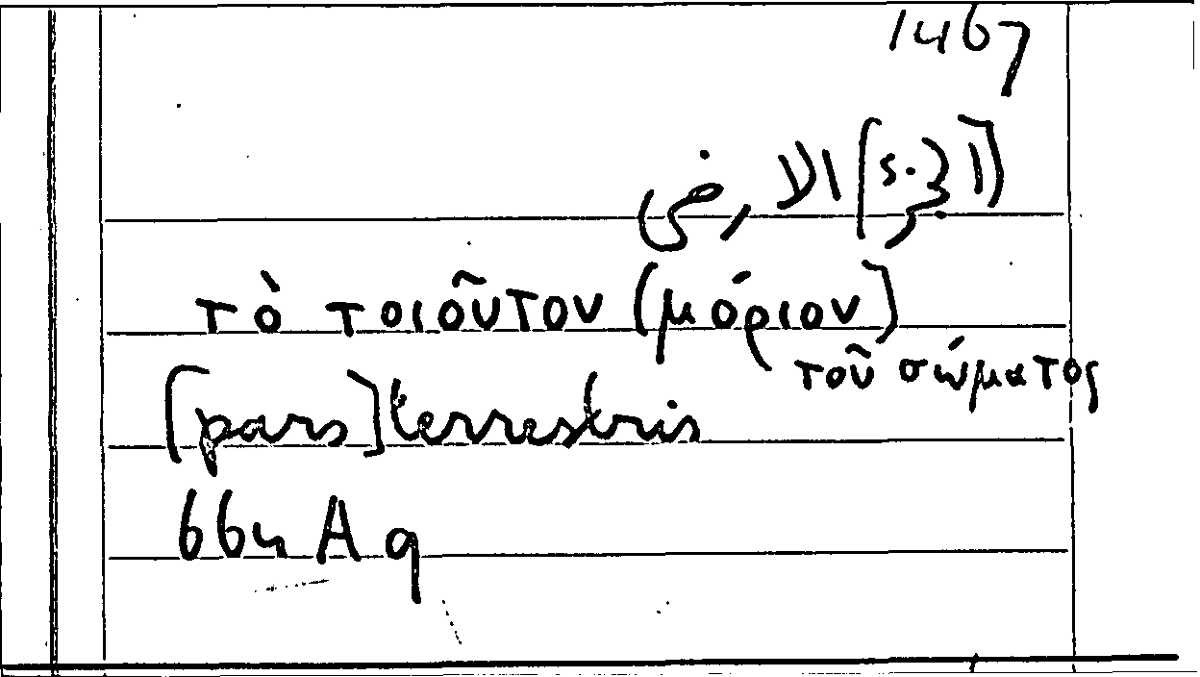 1467
[الجزء] الارضى
τὸ τοιοῦτον (μόριον]
τοῦ σώματος
[pars] terrestris
664 A 9